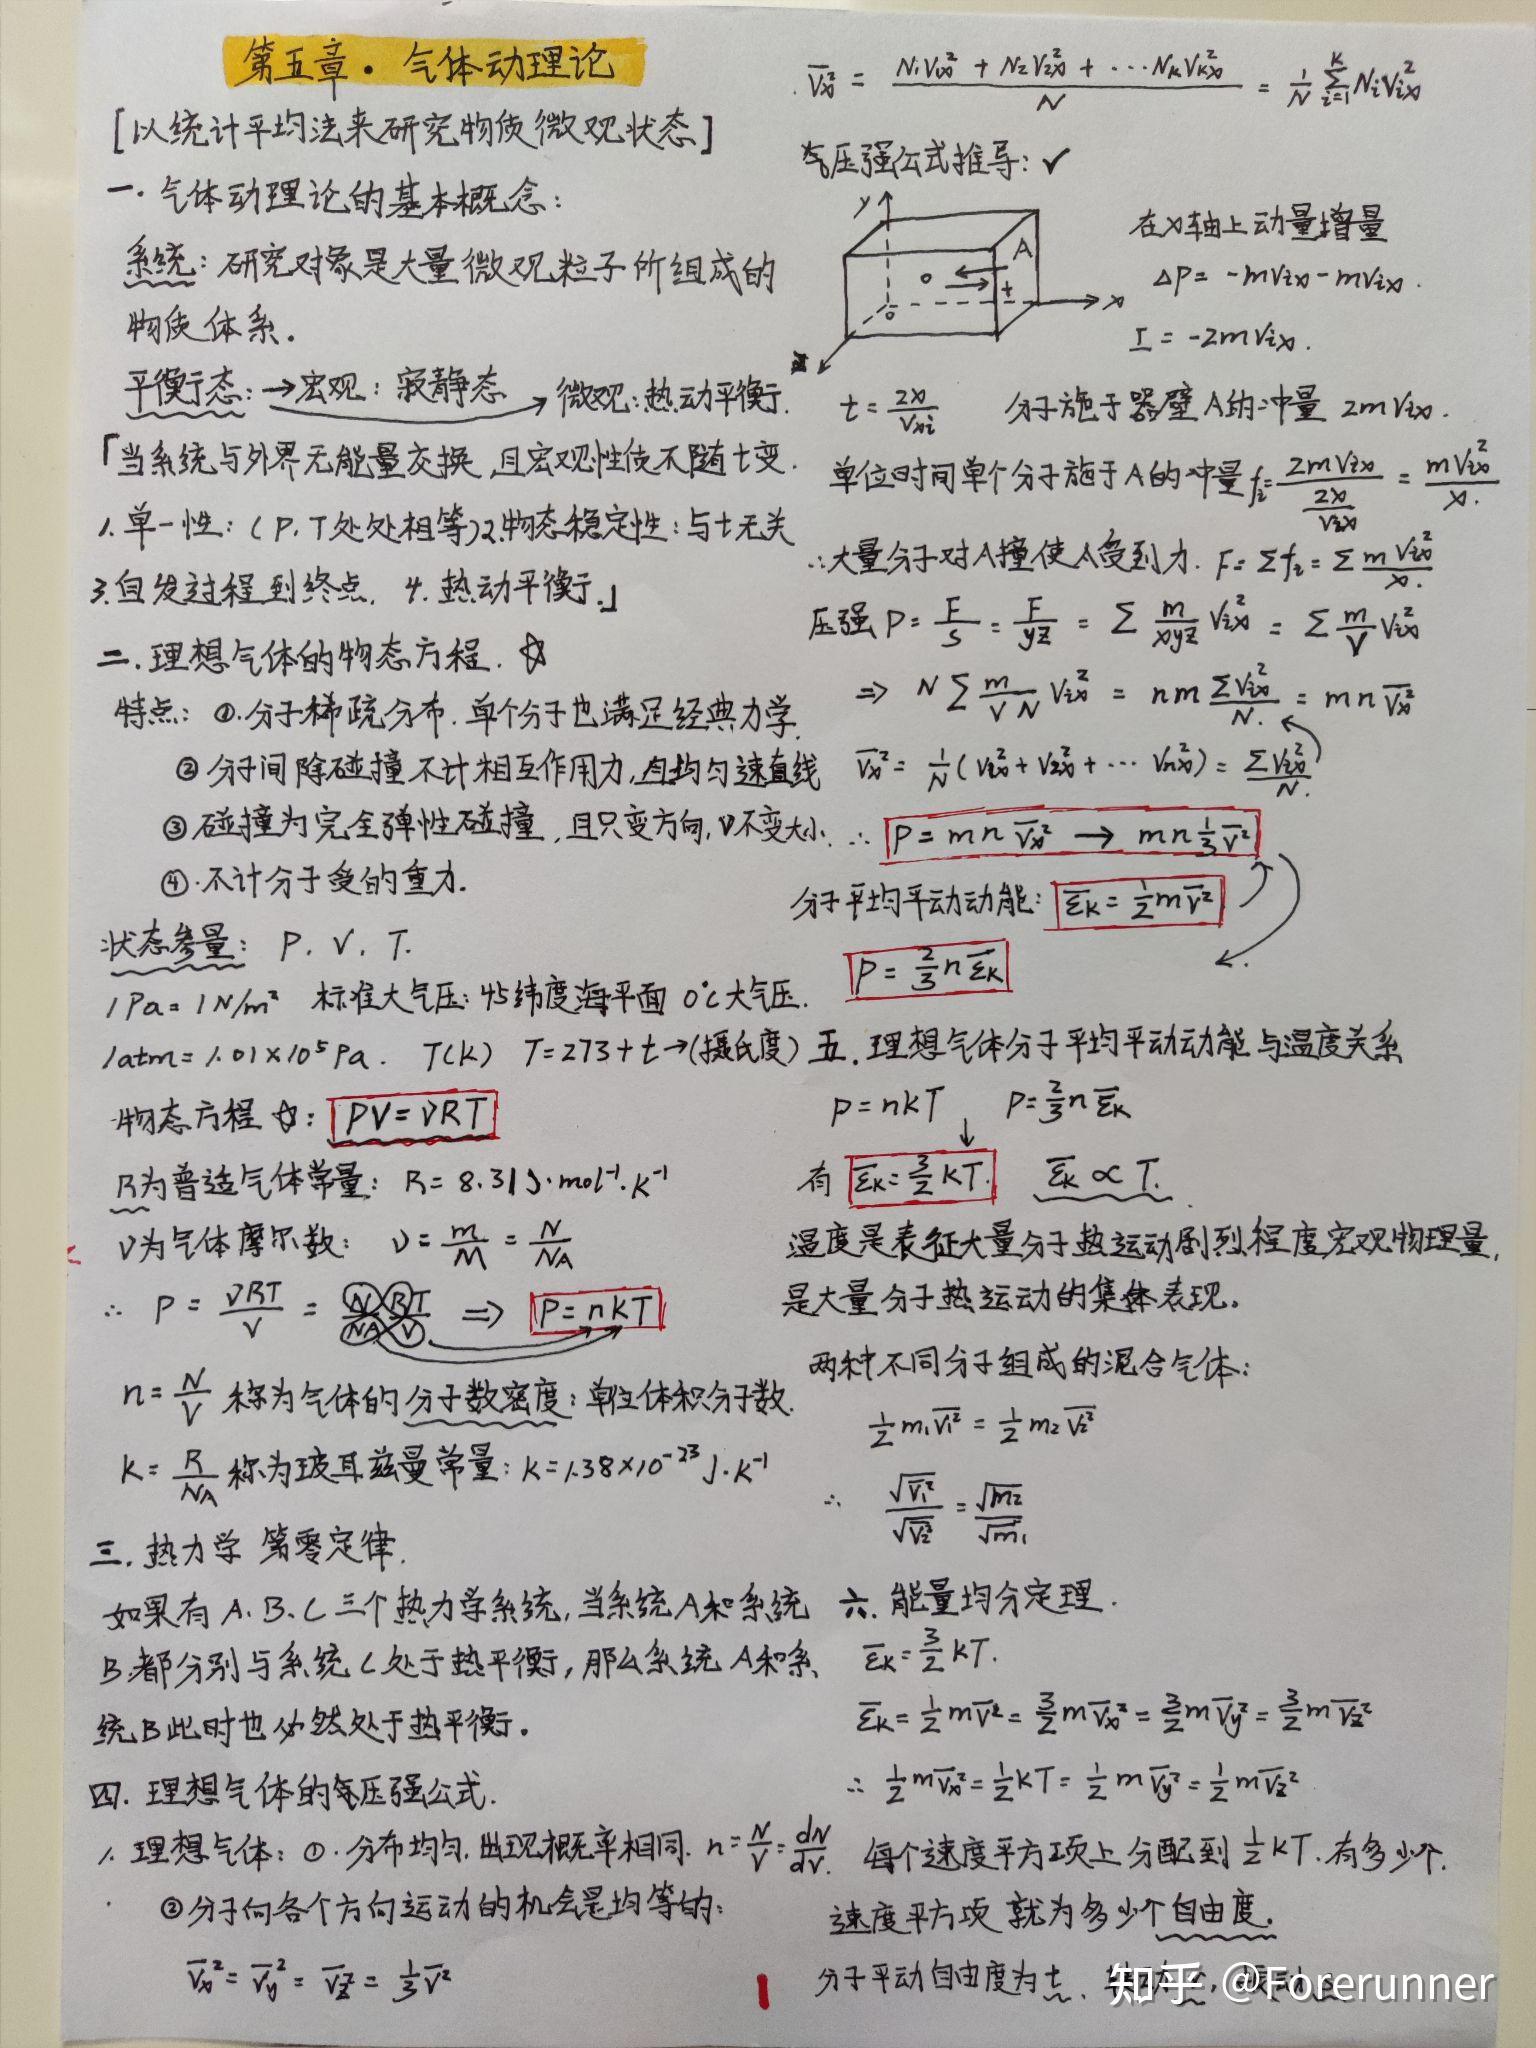 第五章·气体动理论
[以统计平均法来研究物质微观状态]
一.气体动理论的基本概念:
系统:研究对象是大量微观粒子所组成的
物质体系。
平衡态:→宏观:寂静态 → 微观:热动平衡.
「当系统与外界无能量交换,且宏观性质不随t变.
1.单一性:(P.T处处相等)2.物态稳定性:与t无关
3.自发过程到终点. 4.热动平衡.」
二.理想气体的物态方程.☆
特点:①.分子稀疏分布.单个分子也满足经典力学.
②分子间除碰撞不计相互作用力,自均匀速直线
③碰撞为完全弹性碰撞,且只变方向,v不变大小.
④.不计分子受的重力.
状态参量: P. V. T.
1Pa=1N/m² 标准大气压:45纬度海平面 0℃大气压.
1atm=1.01×10⁵Pa. T(K) T=273+t→(摄氏度)
物态方程☆: PV=νRT
R为普适气体常量: R=8.31J·mol⁻¹·K⁻¹
ν为气体摩尔数: ν=m/M=N/NA
∴ P=νRT/V=N RT/NA V ⇒ P=nkT
n=N/V 称为气体的分子数密度:单位体积分子数.
k=R/NA 称为玻耳兹曼常量:k=1.38×10⁻²³J·K⁻¹
三.热力学第零定律.
如果有A.B.C三个热力学系统,当系统A和系统
B.都分别与系统C处于热平衡,那么系统A和系
统B此时也必然处于热平衡。
四.理想气体的压强公式.
1.理想气体:①.分布均匀.出现概率相同.n=N/V=dN/dV.
②分子向各个方向运动的机会是均等的:
v̅x²=v̅y²=v̅z=1/3v̅²
v̅x²=(N₁V₁x²+N₂V₂x²+···NkVkx²)/N=1/N Σ(i=1→k) NiVix²
气压强公式推导:✓
y
A
o
t
o
x
z
在x轴上动量增量
ΔP=-mVix-mVix.
I=-2mVix.
t=2x/Vxi 分子施于器壁A的冲量 2mVix.
单位时间单个分子施于A的冲量fi=2mVix/(2x/Vix)=mVix²/x.
∴大量分子对A撞使A受到力. F=Σfi=Σ mVix²/x.
压强P=F/S=F/yz=Σ m/xyz Vix²=Σ m/V Vix²
⇒ NΣ m/(V N) Vix²=nm ΣVix²/N.=mn v̅x²
v̅x²=1/N(V₁x²+V₂x²+···Vnx²)=ΣVix²/N.
∴ P=mn v̅x² → mn 1/3 v̅²
分子平均平动动能: ε̅k=1/2mv̅²
P=2/3nε̅k
五.理想气体分子平均平动动能与温度关系
P=nkT P=2/3nε̅k
有 ε̅k=3/2kT. ε̅k∝T.
温度是表征大量分子热运动剧烈程度宏观物理量,
是大量分子热运动的集体表现。
两种不同分子组成的混合气体:
1/2m₁v̅₁²=1/2m₂v̅₂²
∴ √v̅₁²/√v̅₂²=√m₂/√m₁
六.能量均分定理.
ε̅k=3/2kT.
ε̅k=1/2mv̅²=3/2mv̅x²=3/2mv̅y²=3/2mv̅z²
∴ 1/2mv̅x²=1/2kT=1/2mv̅y²=1/2mv̅z²
每个速度平方项上分配到1/2kT.有多少个.
速度平方项就为多少个自由度.
分子平动自由度为t.
1
知乎 @Forerunner